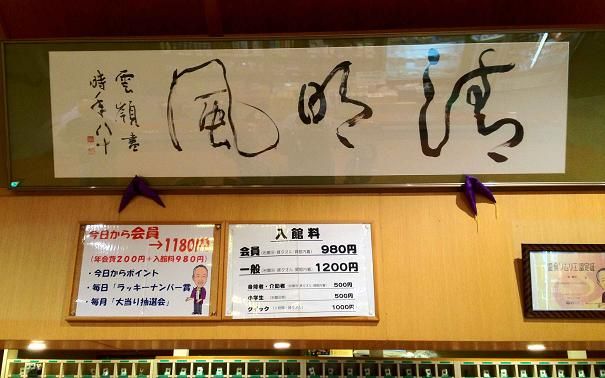 清明風
雲嶺書
時年八十
今日から会員
→1180円
(年会費200円+入館料980円)
・今日からポイント
・毎日「ラッキーナンバー賞」
・毎月「大当り抽選会」
入館料
会員 980円
一般 1200円
身障者・介助者 500円
小学生 500円
クイック 1000円